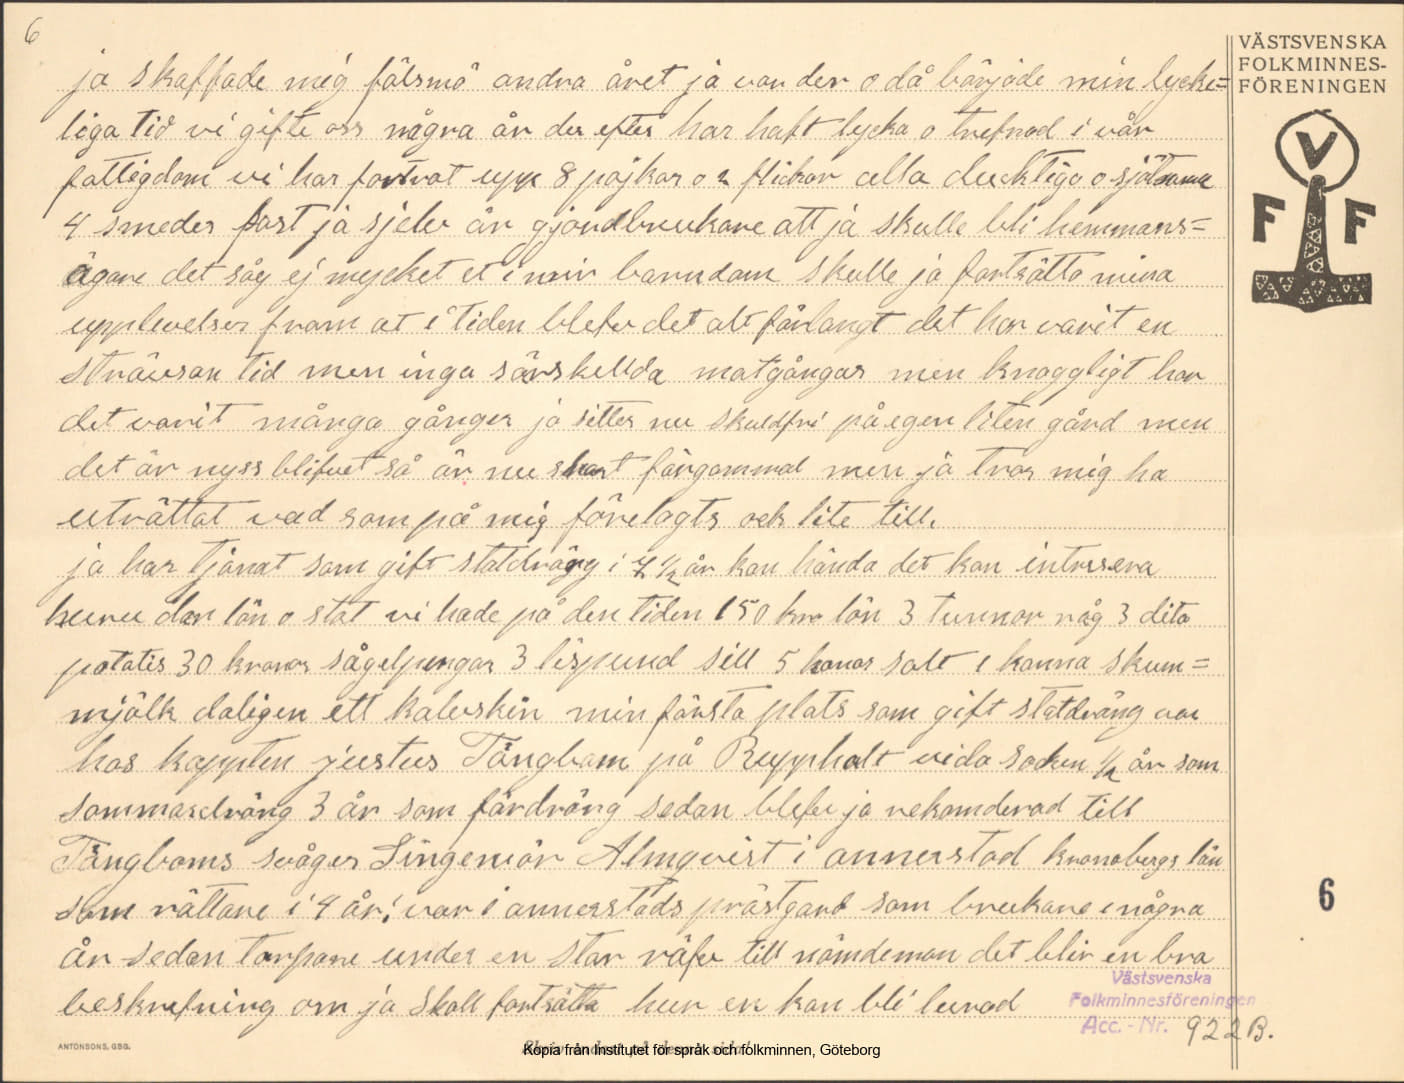 6
VÄSTSVENSKA
FOLKMINNES-
FÖRENINGEN
V
F F
ja skaffade mig fälsmö andra året ja var der o då börjöde min lycke=
liga tid vi gifte oss några år der efter har haft lycka o trefnad i vår
fattigdom vi har fostrat upp 8 pojkar o 2 flickor alla ducktiga o
4 smeder fast ja sjelv är gjordbrukare att ja skulle bli hemmans=
ägare det såg ej mycket et i min barndom skulle ja fortsätta mina
upplevelser fram at i tiden blefv det alt förlangt det har varit en
strävsan tid men inga särskellda motgångar men knaggligt har
det varit många gånger ja sitter nu skuldfri på egen liten gård men
det är nyss blifvet så är nu snart förgammal men ja tror mig ha
uträttat vad som på mig förelagts och lite till.
ja har tjänat som gift statdräng i 7 ½ år kan hända det kan intressera
huru dan lön o stat vi hade på den tiden 150 kr lön 3 tunnor råg 3 dito
potatis 30 kronor sågelpengar 3 lispund sill 5 kanor salt 1 kanna skum=
mjölk daligen ett kalvskin min första plats som gift statdräng var
hos kappten justus Tängbom på Rupphult vida socken ½ år som
sommardräng 3 år som fördräng sedan blefv ja rekomderad till
Tängboms svåger Lingeniör Almqvist i annerstad kronobergs län
som rättare i 4 år; var i annerstads prästgard som brukare i några
år sedan torpare under en stor räfv till nämdeman det blir en bra
beskrifning om ja skall fortsätta hur en kan bli lurad
6
Västsvenska
Folkminnesföreningen
Acc. - Nr. 922B.
ANTONSONS, GBG.
Kopia från Institutet för språk och folkminnen, Göteborg